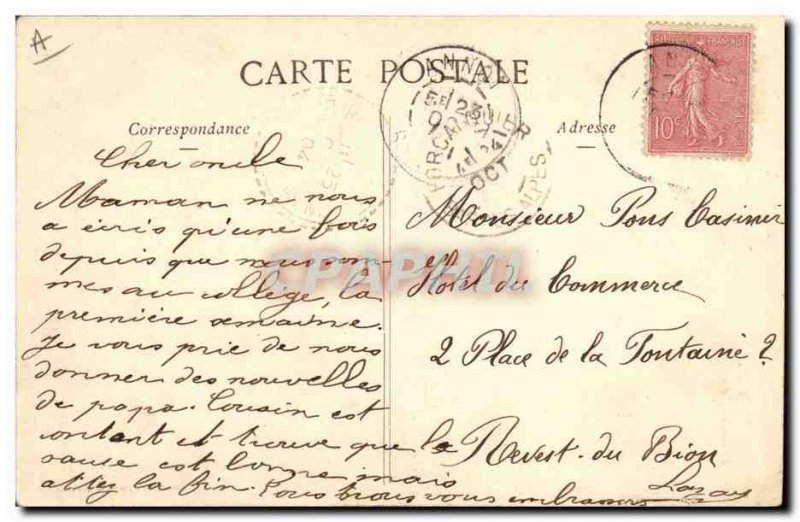 A
CARTE POSTALE
Correspondance
Adresse
10c
Cher oncle
Maman ne nous
a écris qu'une fois
depuis que nous som-
mes au collège, la
première semaine.
Je vous prie de nous
donner des nouvelles
de papa. Cousin est
content et trouve que la
sauce est bonne mais
attez la fin. Tous nous vous embrassons
Monsieur Pons Casimir
Hôtel du Commerce
2 Place de la Fontaine 2
Revest-du Bion
FORCALQUIER
24
OCT
ALPES
CPAPHIL